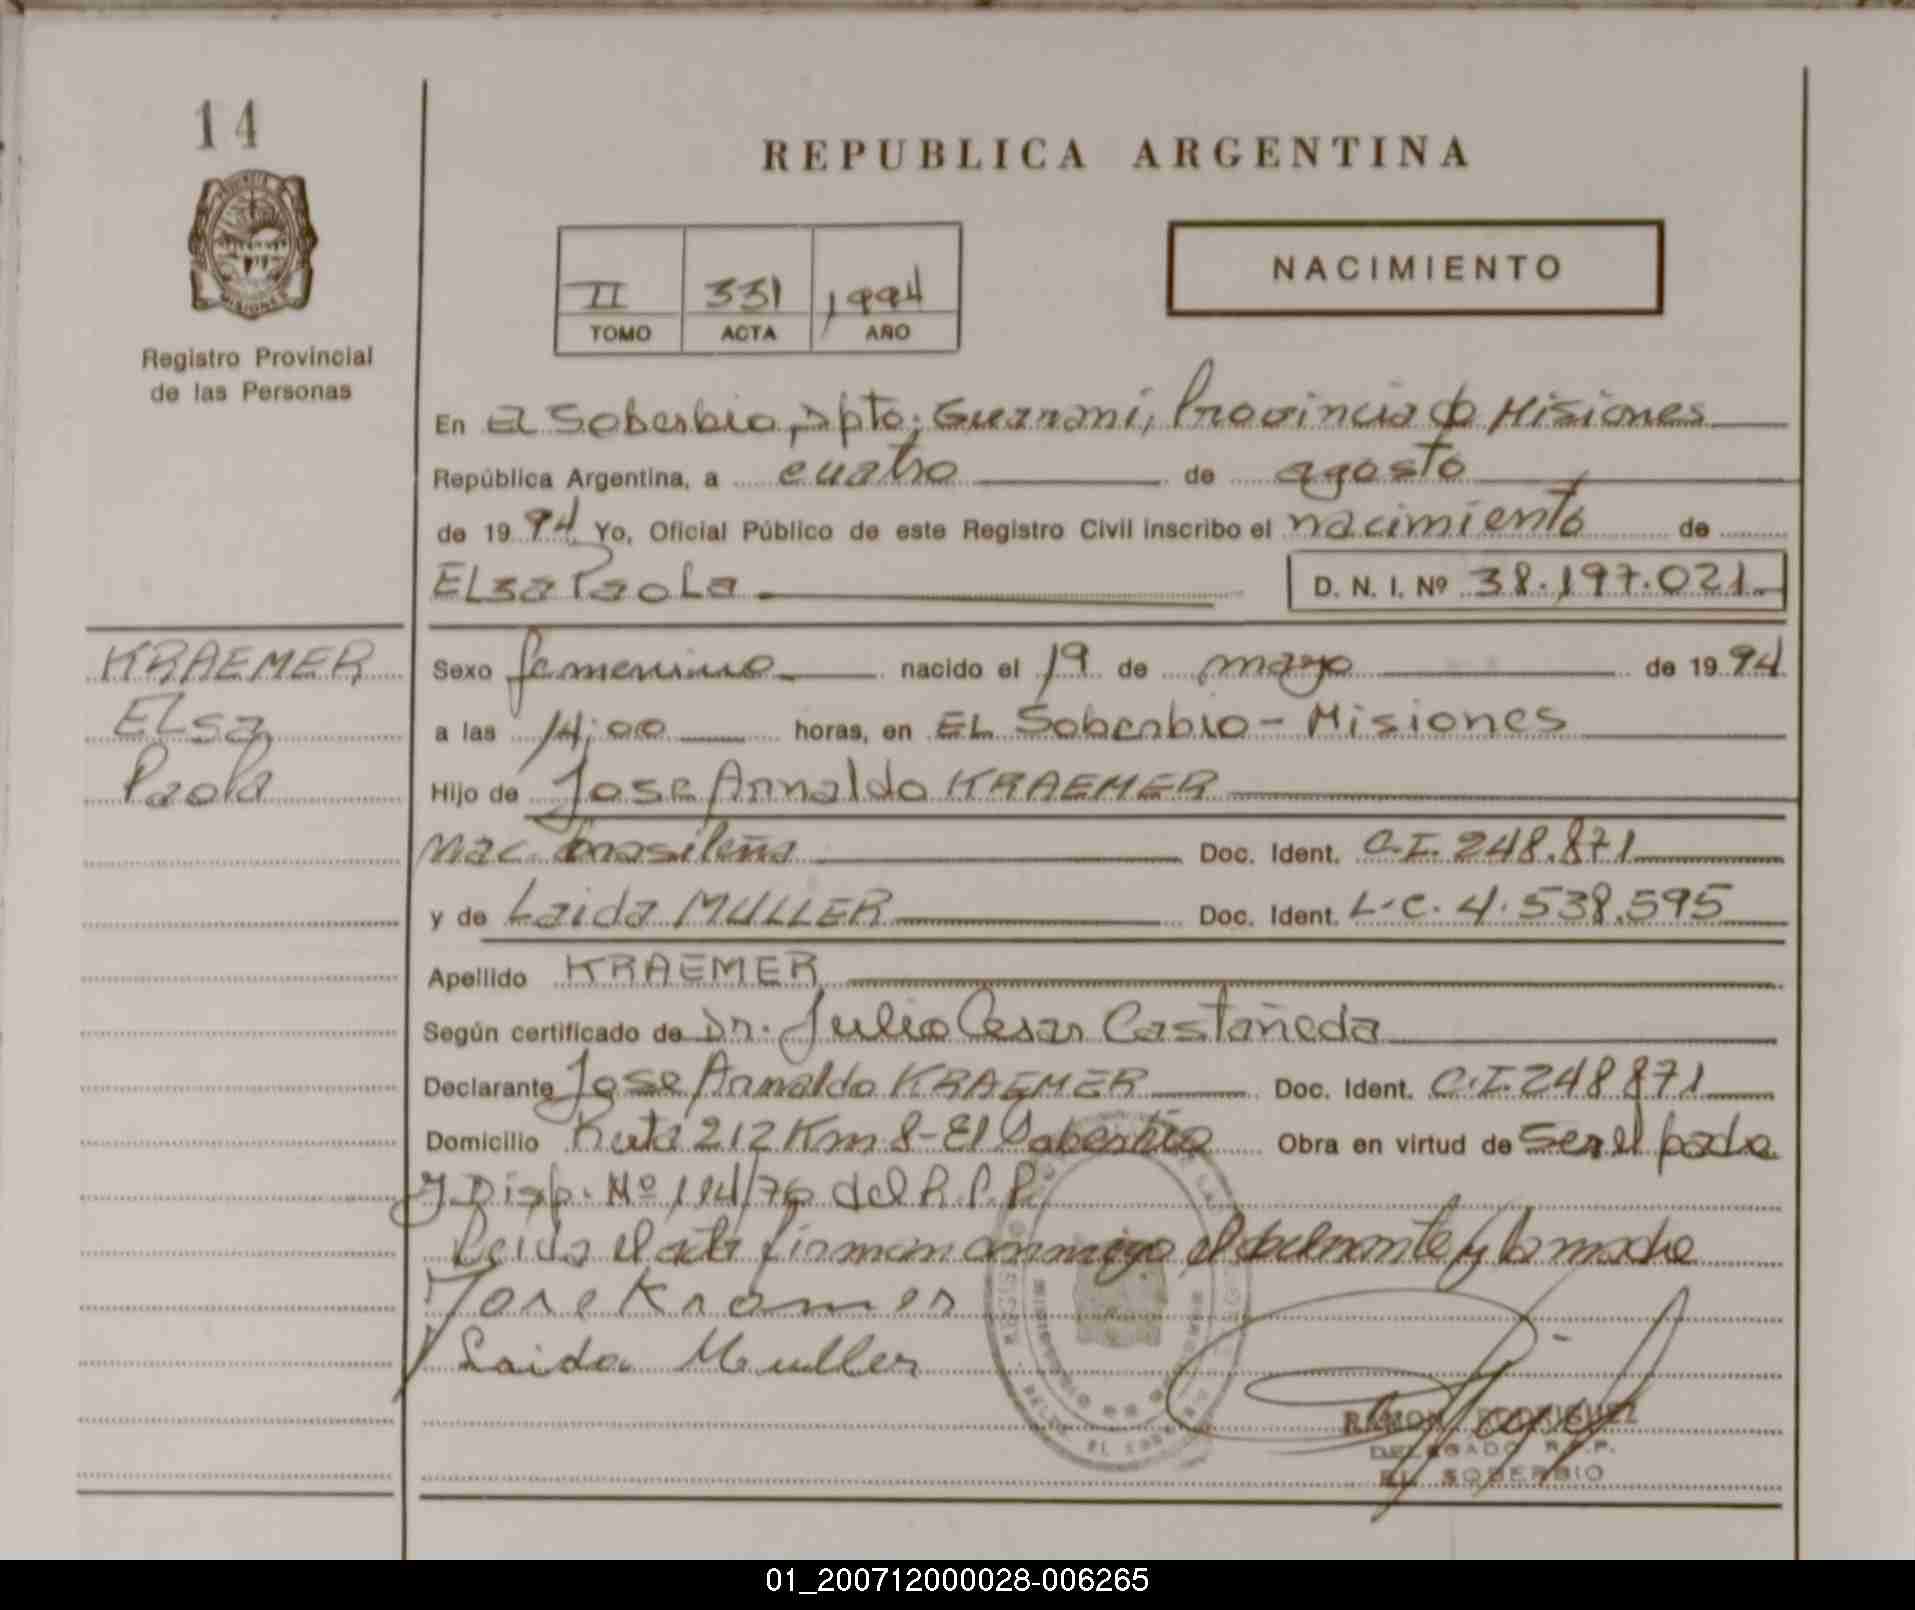 14
REPUBLICA ARGENTINA
II 331 1994
TOMO ACTA AÑO
NACIMIENTO
MISIONES
Registro Provincial
de las Personas
En El Soberbio, Dpto: Guarani, Provincia de Misiones
República Argentina, a cuatro de agosto
de 1994 Yo, Oficial Público de este Registro Civil inscribo el nacimiento de
ELsa PaoLa D. N. I. Nº 38.197.021
KRAEMER
ELsa
Paola
Sexo femenino nacido el 19 de mayo de 1994
a las 14:00 horas, en EL Soberbio - Misiones
Hijo de Jose Arnaldo KRAEMER
nac. brasileña Doc. Ident. C.I. 248.871
y de Laida MULLER Doc. Ident. L.C. 4.538.595
Apellido KRAEMER
Según certificado de Dr. Julio Cesar Castañeda
Declarante Jose Arnaldo KRAEMER Doc. Ident. C.I. 248871
Domicilio Ruta 212 Km 8 - El Soberbio Obra en virtud de Ser el padre
y Disp. Nº 114/76 del R.P.P.
Leida el acta firman conmigo el declarante y la madre
Jose Kramer
Laida Muller
RAMON RODRIGUEZ
DELEGADO R.P.P.
EL SOBERBIO
01_200712000028-006265